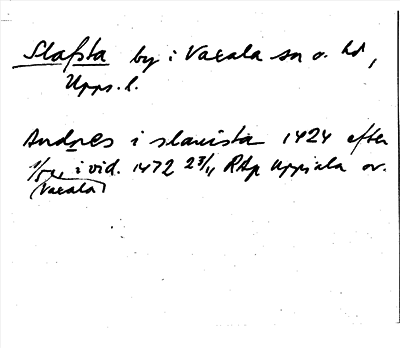 Slafsta by i Vaxala sn o. hd,
Upps. l.
Andres i slauista 1424 efter
i vid. 1472 23/4 RAp Uppsala or.
(Vaxala)